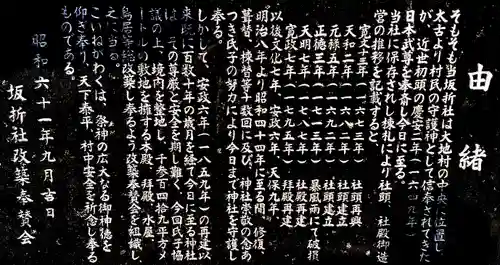 由緒
そもそも当坂折社は大地村の中央に位置し
太古より村民の守護神として信奉されてきた
が、近世初頭の慶安二年(一六四九年)
日本武尊を奉斎し今日に至る。
当社に保存されし棟札により社頭、社殿御造
営の推移を記載すると、
寛文十三年(一六七三年) 社頭再興
天和二年(一六八二年) 社頭建立
元禄五年(一六九二年) 社頭建立
正徳三年(一七一三年) 暴風雨にて破損
社殿再建
寛政七年(一七九五年) 拝殿再建
以後文化七年、安政六年、天保九年
明治八年より昭和四十四年に至る間、修復、
葺替、棟替等十数回に及び、神社崇敬の念あ
つき氏子の努力により今日まで神社を守護し
来る。
しかして、安政六年(一八五九年)の再建以
来既に百数十年の歳月を経て今日に至る神社
は、その尊厳と安全を期し難く、今回氏子協
議の上、境内を整地し、千参百四拾五平方メ
ートルの敷地を擁する本殿、拝殿、水屋
鳥居等総改築し奉るよう改築奉賛会を組織し
之に当る。
こいねがわくは、祭神の広大なる御神徳を
仰ぎ奉り、天下泰平、村中安全を祈念し奉る
ものである。
昭和六十一年九月吉日
坂折社改築奉賛会